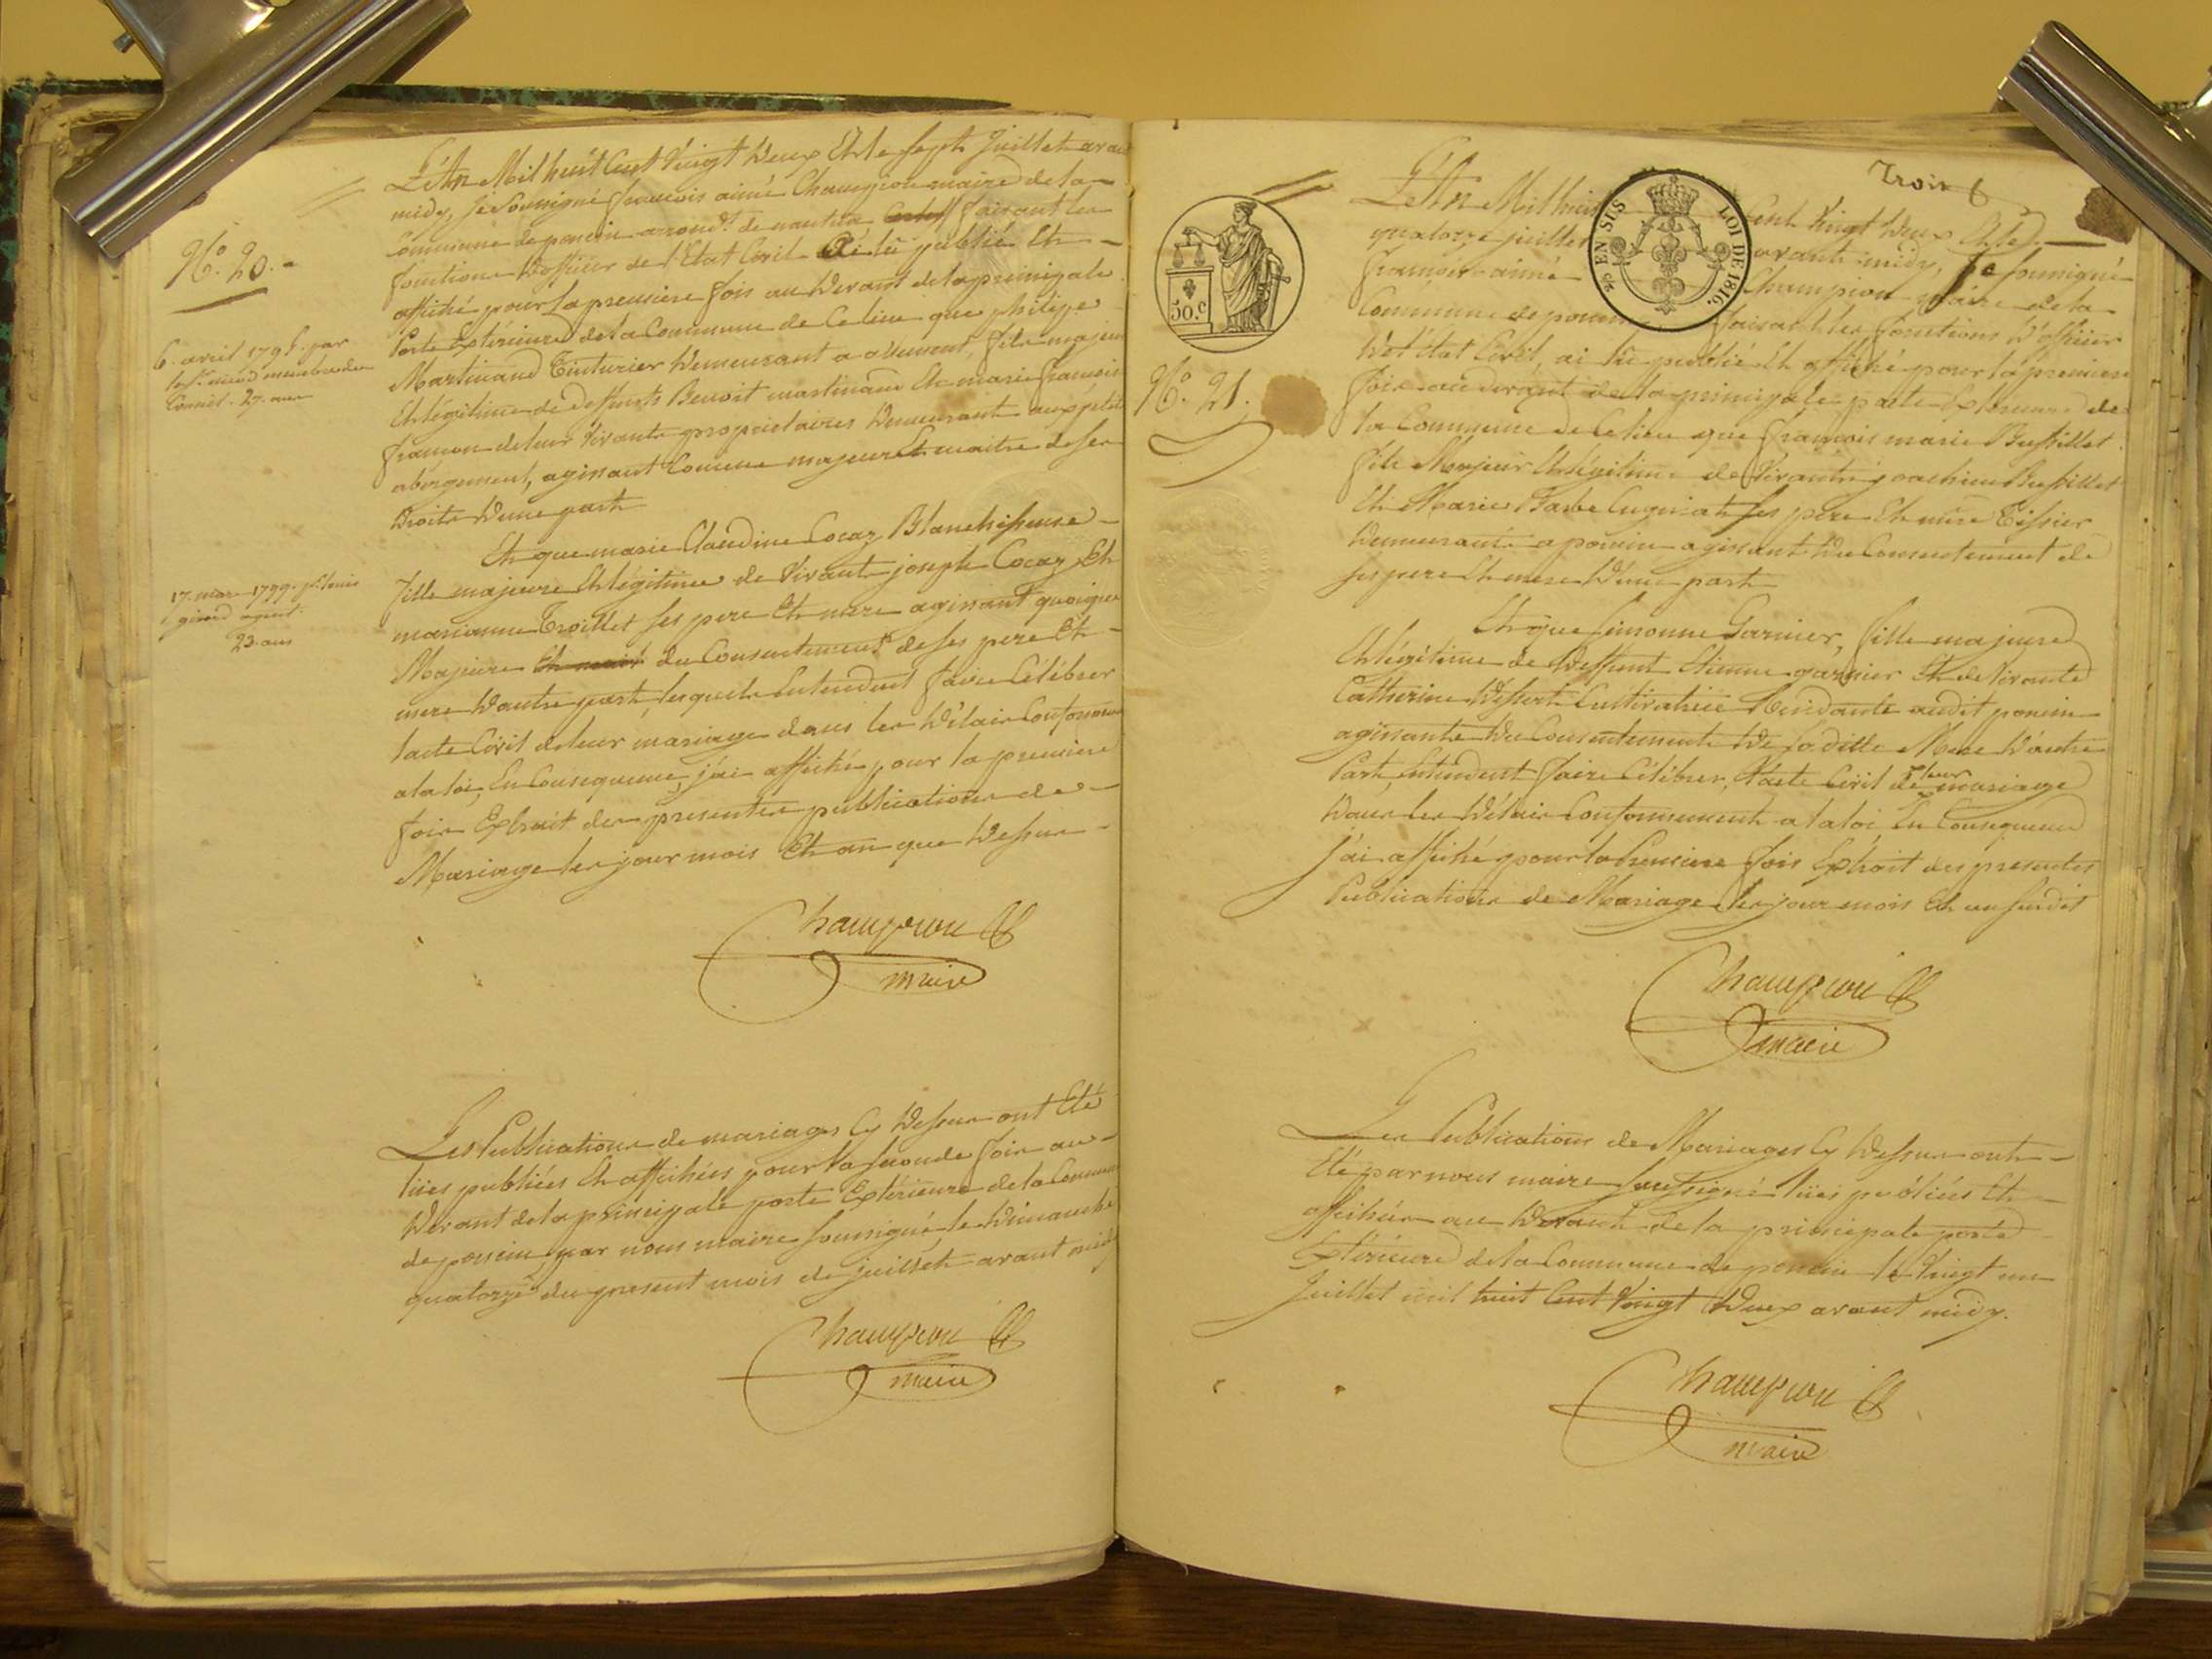 L'An Mil huit Cent Vingt Deux Et le Sept Juillet avant
midy, Je Soussigné françois aimé Champion maire de la
Commune de poncin arrond.t de nantua faisant les
fonctions D'officier de l'Etat Civil Ai lu publié Et
affiché pour La premiere fois au Devant de la principale
Porte Extérieure de la Commune de Ce lieu que philipe
Martinand Tinturier Demeurant a allement, fils majeur
Et légitime de deffunts Benoit martinand Et marie françoise
framon de leur Vivants propriétaires Demeurant aux petits
abergement, agissant Comme majeur Et maitre de ses
Droits D'une part
Et que marie Claudine Cocaz Blanchisseuse
fille majeure Et légitime de Vivants joseph Cocaz Et
marianne Troillet ses pere Et mere agissant quoique
Majeure du Consentement de ses pere Et
mere D'autre part, lesquels Entendent faire Célébrer
l'acte Civil de leur mariage dans les Délais Conformément
a la loi, En Conséquence, j'ai affiché pour la premiere
fois Extrait des presentes publications de
Mariage les jour mois Et an que Dessus
Champion
maire
Les Publications de mariages Cy Dessus ont Eté
lües publiées Et affichées pour la seconde fois au
Devant de la principale porte Extérieure de la Commune
de poncin, par nous maire soussigné, le Dimanche
quatorze du present mois de juillet avant midi
Champion
maire
N.o 20.
6. avril 1795. par
27. ans
17. mars 1799. p.r louis
girod agent.
23. ans
Trois
L'An Mil huit Cent Vingt Deux Et le
quatorze juillet avant midy, Je soussigné
françois aimé Champion maire de la
Commune de poncin faisant les fonctions D'officier
De l'Etat Civil, ai lu publié Et affiché pour la premiere
fois au devant de la principale porte Exterieure de
la Commune de Ce lieu que françois marie Bussillet
fils Majeur Et légitime de Vivants joachim Bussillet
Et Marie Barbe Cuginat ses pere Et mere Tissier
Demeurant a poncin agissant Du Consentement de
ses pere Et mere D'une part
Et que Simonne Garnier, fille majeure
Et légitime de Deffunt Etienne garnier Et de Vivante
Catherine Dessert Cultivatrice Residante audit poncin
agissante Du Consentement De sa ditte Mere D'autre
Part, Entendent faire Célébrer, l'acte Civil de leur mariage
Dans les Délais Conformément a la loi, En Conséquence
j'ai affiché pour la Premiere fois Extrait des presentes
Publications de Mariage les jour mois Et an susdit
Champion
maire
Les Publications de Mariages Cy Dessus ont
Eté par nous maire soussigné lües publiées Et
affichées au Devant de la principale porte
Extérieure de la Commune de poncin le Vingt un
Juillet mil huit Cent Vingt Deux avant midy.
Champion
maire
N.o 21.
50.c
LOI DE 1816.
EN SUS